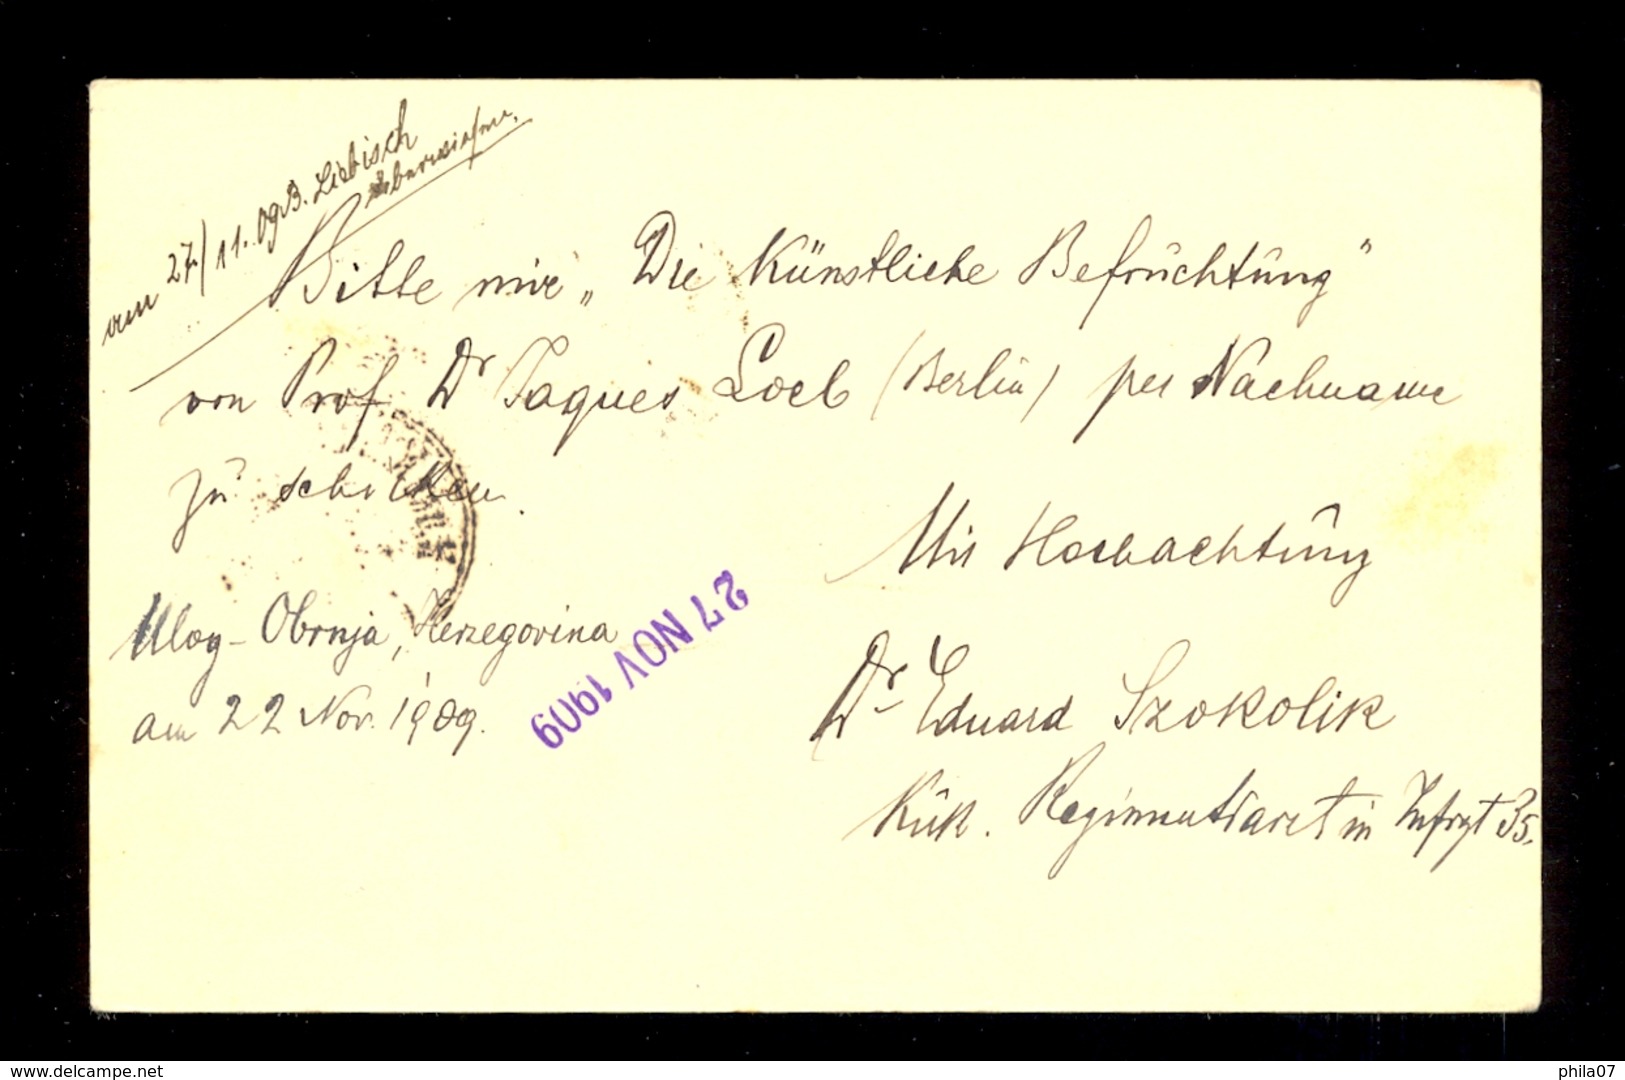 am 27/11.09 B. Liebisch
überwiesen.
Bitte mir „Die Künstliche Befrüchtüng"
von Prof Dr Jaques Loeb (Berlin) per Nachname
zu schicken
Mit Hochachtüng
Ulog - Obrnja, Herzegovina
am 22 Nov. 1909.
27 NOV 1909
Dr Eduard Szokolik
KüK. Regimentsarzt in Infrgt 35.
delcampe.net
phila07